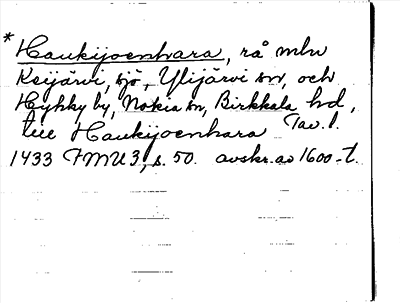 * Haukijoenhara, rå mln
Keijärvi, sjö, Ylijärvi sn, och
Hyhky by, Nokia sn, Birkkala hd,
till Haukijoenhara Tav. l.
1433 FMU 3, s. 50. avskr. av 1600-t.